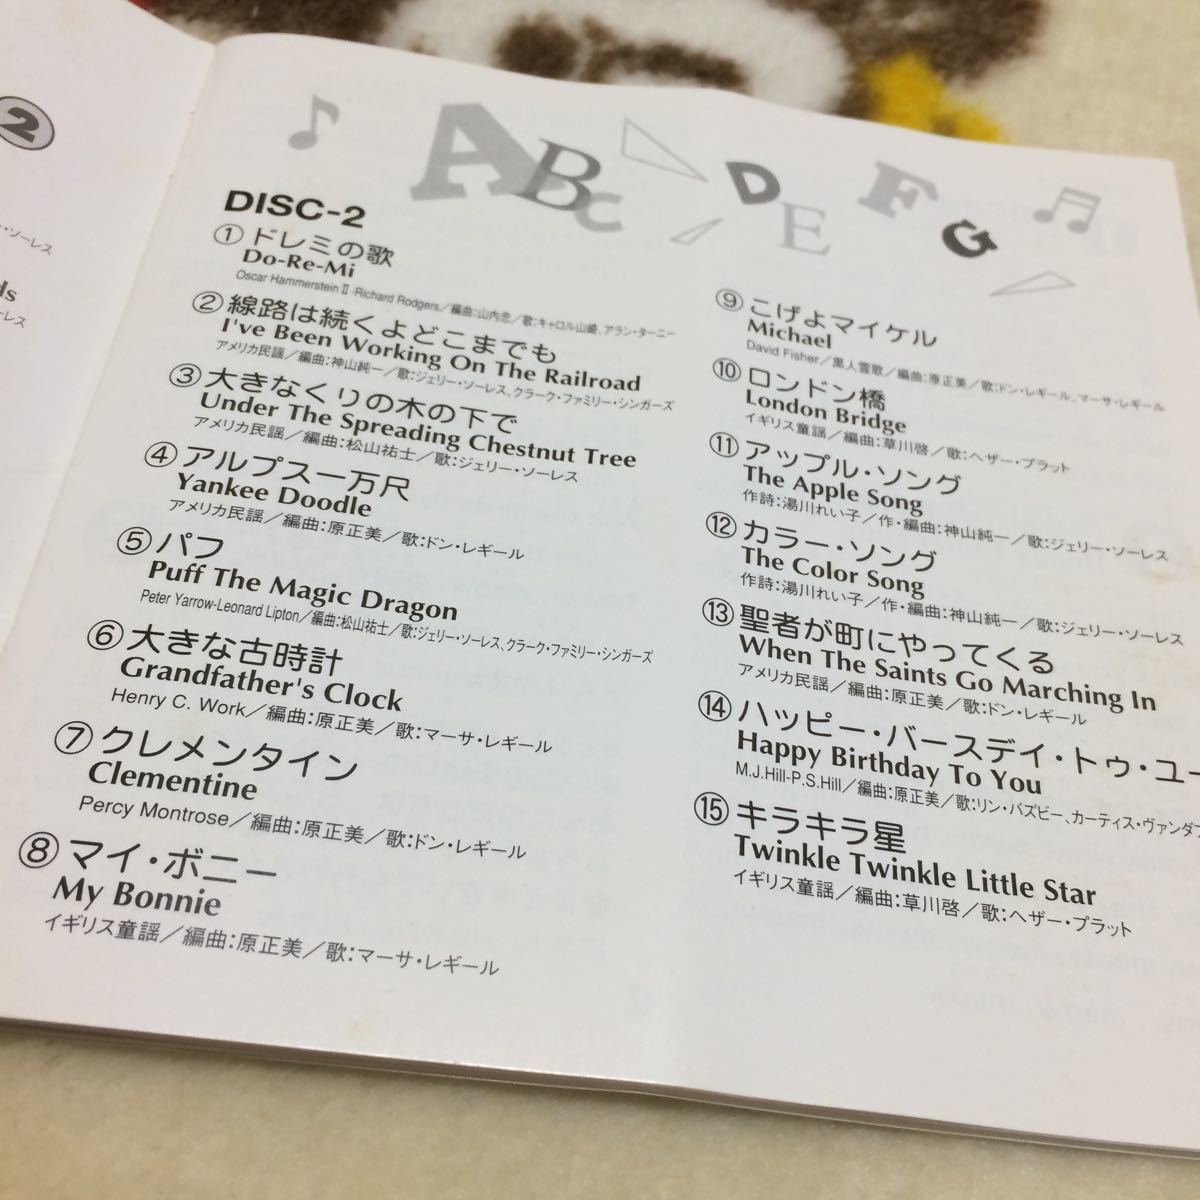 2
・ソーレス
ds
ーレス
A B C D E F G
DISC-2
① ドレミの歌
Do-Re-Mi
Oscar Hammerstein Ⅱ-Richard Rodgers／編曲：山内忠／歌：キャロル山崎、アラン・ターニー
② 線路は続くよどこまでも
I've Been Working On The Railroad
アメリカ民謡／編曲：神山純一／歌：ジェリー・ソーレス、クラーク・ファミリー・シンガーズ
③ 大きなくりの木の下で
Under The Spreading Chestnut Tree
アメリカ民謡／編曲：松山祐士／歌：ジェリー・ソーレス
④ アルプス一万尺
Yankee Doodle
アメリカ民謡／編曲：原正美／歌：ドン・レギール
⑤ パフ
Puff The Magic Dragon
Peter Yarrow-Leonard Lipton／編曲：松山祐士／歌：ジェリー・ソーレス、クラーク・ファミリー・シンガーズ
⑥ 大きな古時計
Grandfather's Clock
Henry C. Work／編曲：原正美／歌：マーサ・レギール
⑦ クレメンタイン
Clementine
Percy Montrose／編曲：原正美／歌：ドン・レギール
⑧ マイ・ボニー
My Bonnie
イギリス童謡／編曲：原正美／歌：マーサ・レギール
⑨ こげよマイケル
Michael
David Fisher／黒人霊歌／編曲：原正美／歌：ドン・レギール、マーサ・レギール
⑩ ロンドン橋
London Bridge
イギリス童謡／編曲：草川啓／歌：ヘザー・プラット
⑪ アップル・ソング
The Apple Song
作詩：湯川れい子／作・編曲：神山純一／歌：ジェリー・ソーレス
⑫ カラー・ソング
The Color Song
作詩：湯川れい子／作・編曲：神山純一／歌：ジェリー・ソーレス
⑬ 聖者が町にやってくる
When The Saints Go Marching In
アメリカ民謡／編曲：原正美／歌：ドン・レギール
⑭ ハッピー・バースデイ・トゥ・ユー
Happy Birthday To You
M.J.Hill-P.S.Hill／編曲：原正美／歌：リン・バズビー、カーティス・ヴァンダ
⑮ キラキラ星
Twinkle Twinkle Little Star
イギリス童謡／編曲：草川啓／歌：ヘザー・プラット